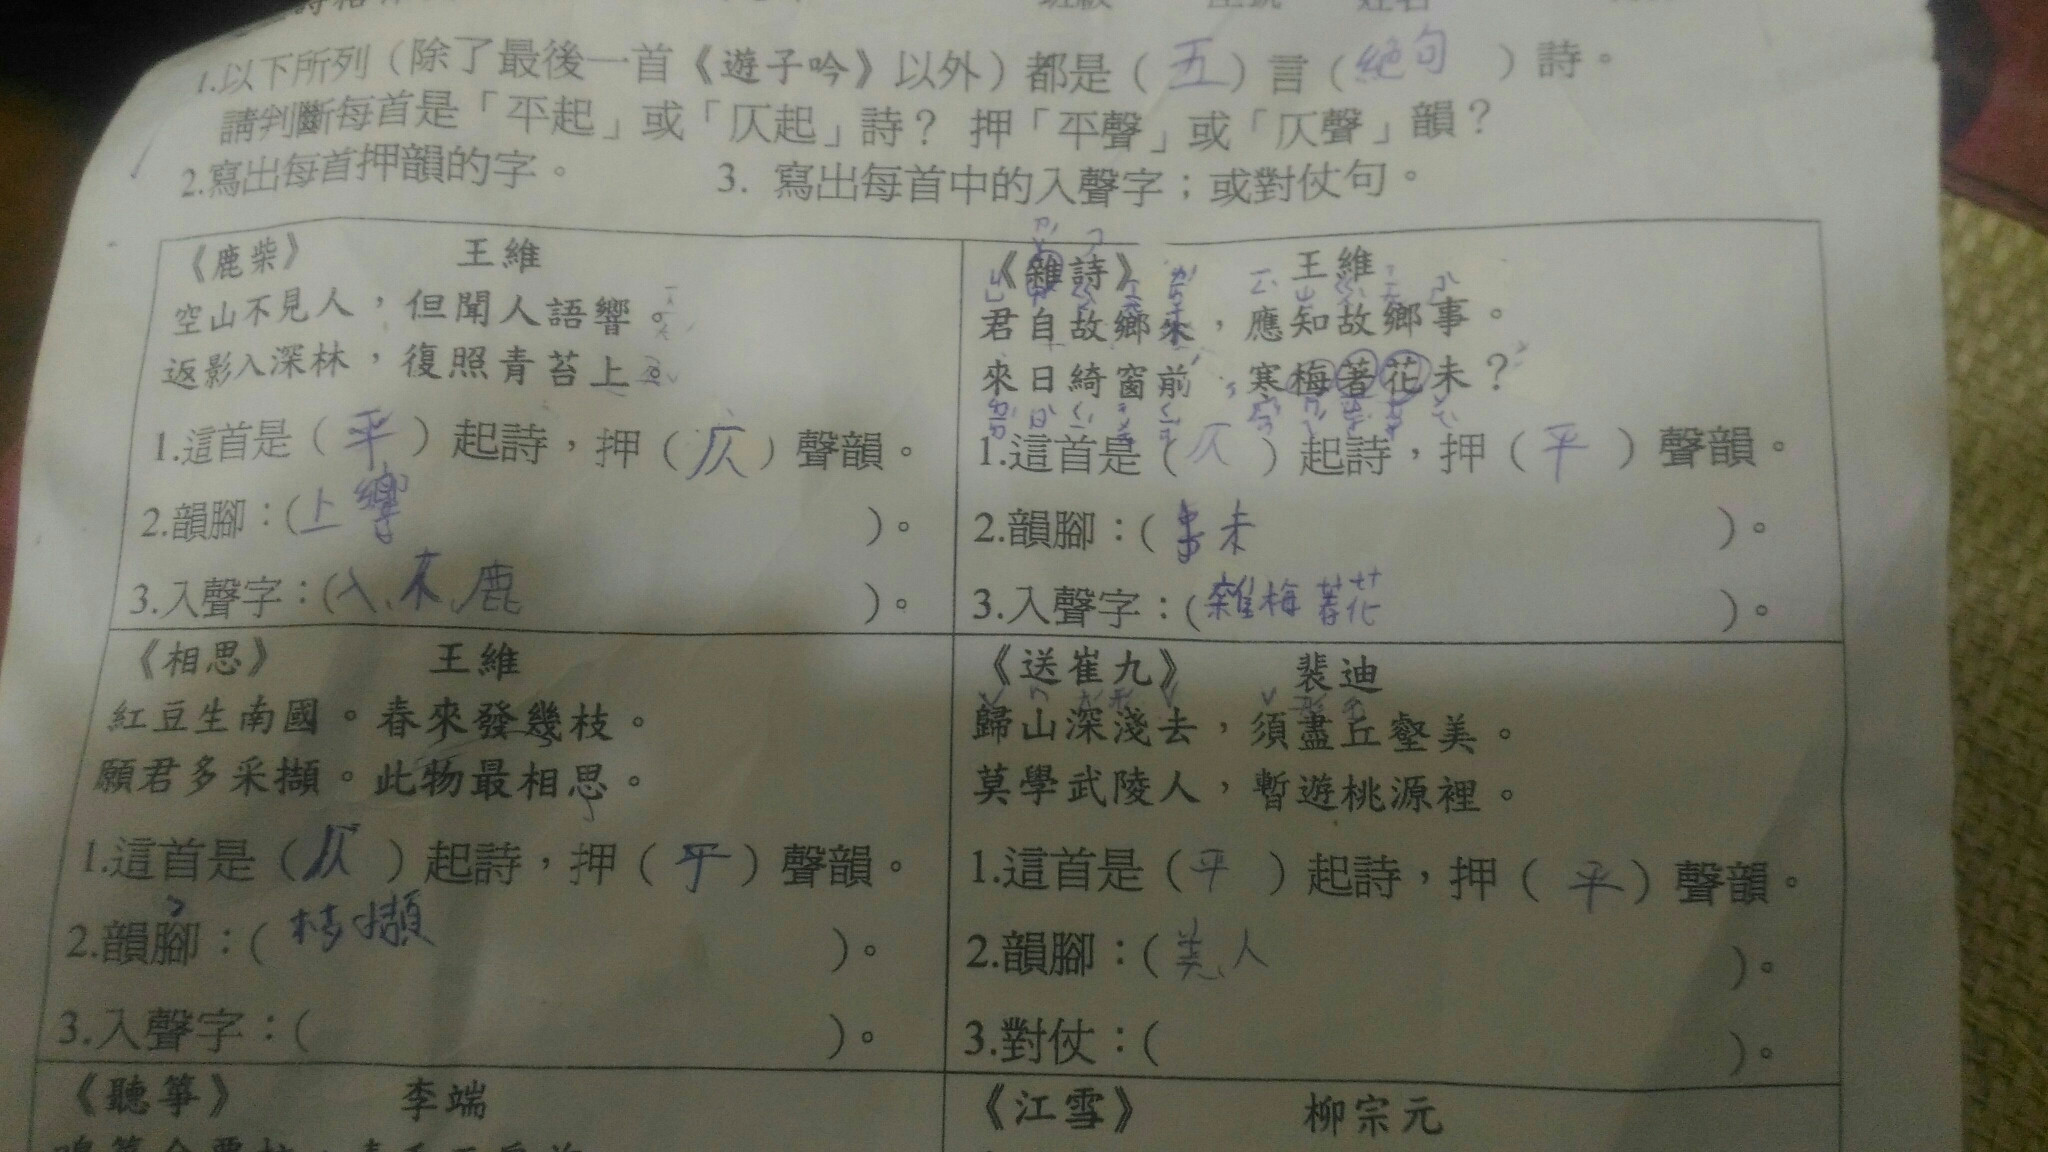 1.以下所列（除了最後一首《遊子吟》以外）都是（五）言（絕句）詩。
請判斷每首是「平起」或「仄起」詩？ 押「平聲」或「仄聲」韻？
2.寫出每首押韻的字。 3. 寫出每首中的入聲字；或對仗句。
《鹿柴》 王維
空山不見人，但聞人語響。
返影入深林，復照青苔上
1.這首是（平）起詩，押（仄）聲韻。
2.韻腳：(上響)。
3.入聲字：(入、不、鹿)。
《雜詩》 王維
君自故鄉來，應知故鄉事。
來日綺窗前，寒梅著花未？
1.這首是（仄）起詩，押（平）聲韻。
2.韻腳：(事未)。
3.入聲字：(雜梅著花)。
《相思》 王維
紅豆生南國。春來發幾枝。
願君多采擷。此物最相思。
1.這首是（仄）起詩，押（平）聲韻。
2.韻腳：(枝擷)。
3.入聲字：( )。
《送崔九》 裴迪
歸山深淺去，須盡丘壑美。
莫學武陵人，暫遊桃源裡。
1.這首是（平）起詩，押（平）聲韻。
2.韻腳：(美、人)。
3.對仗：( )。
《聽箏》 李端
《江雪》 柳宗元